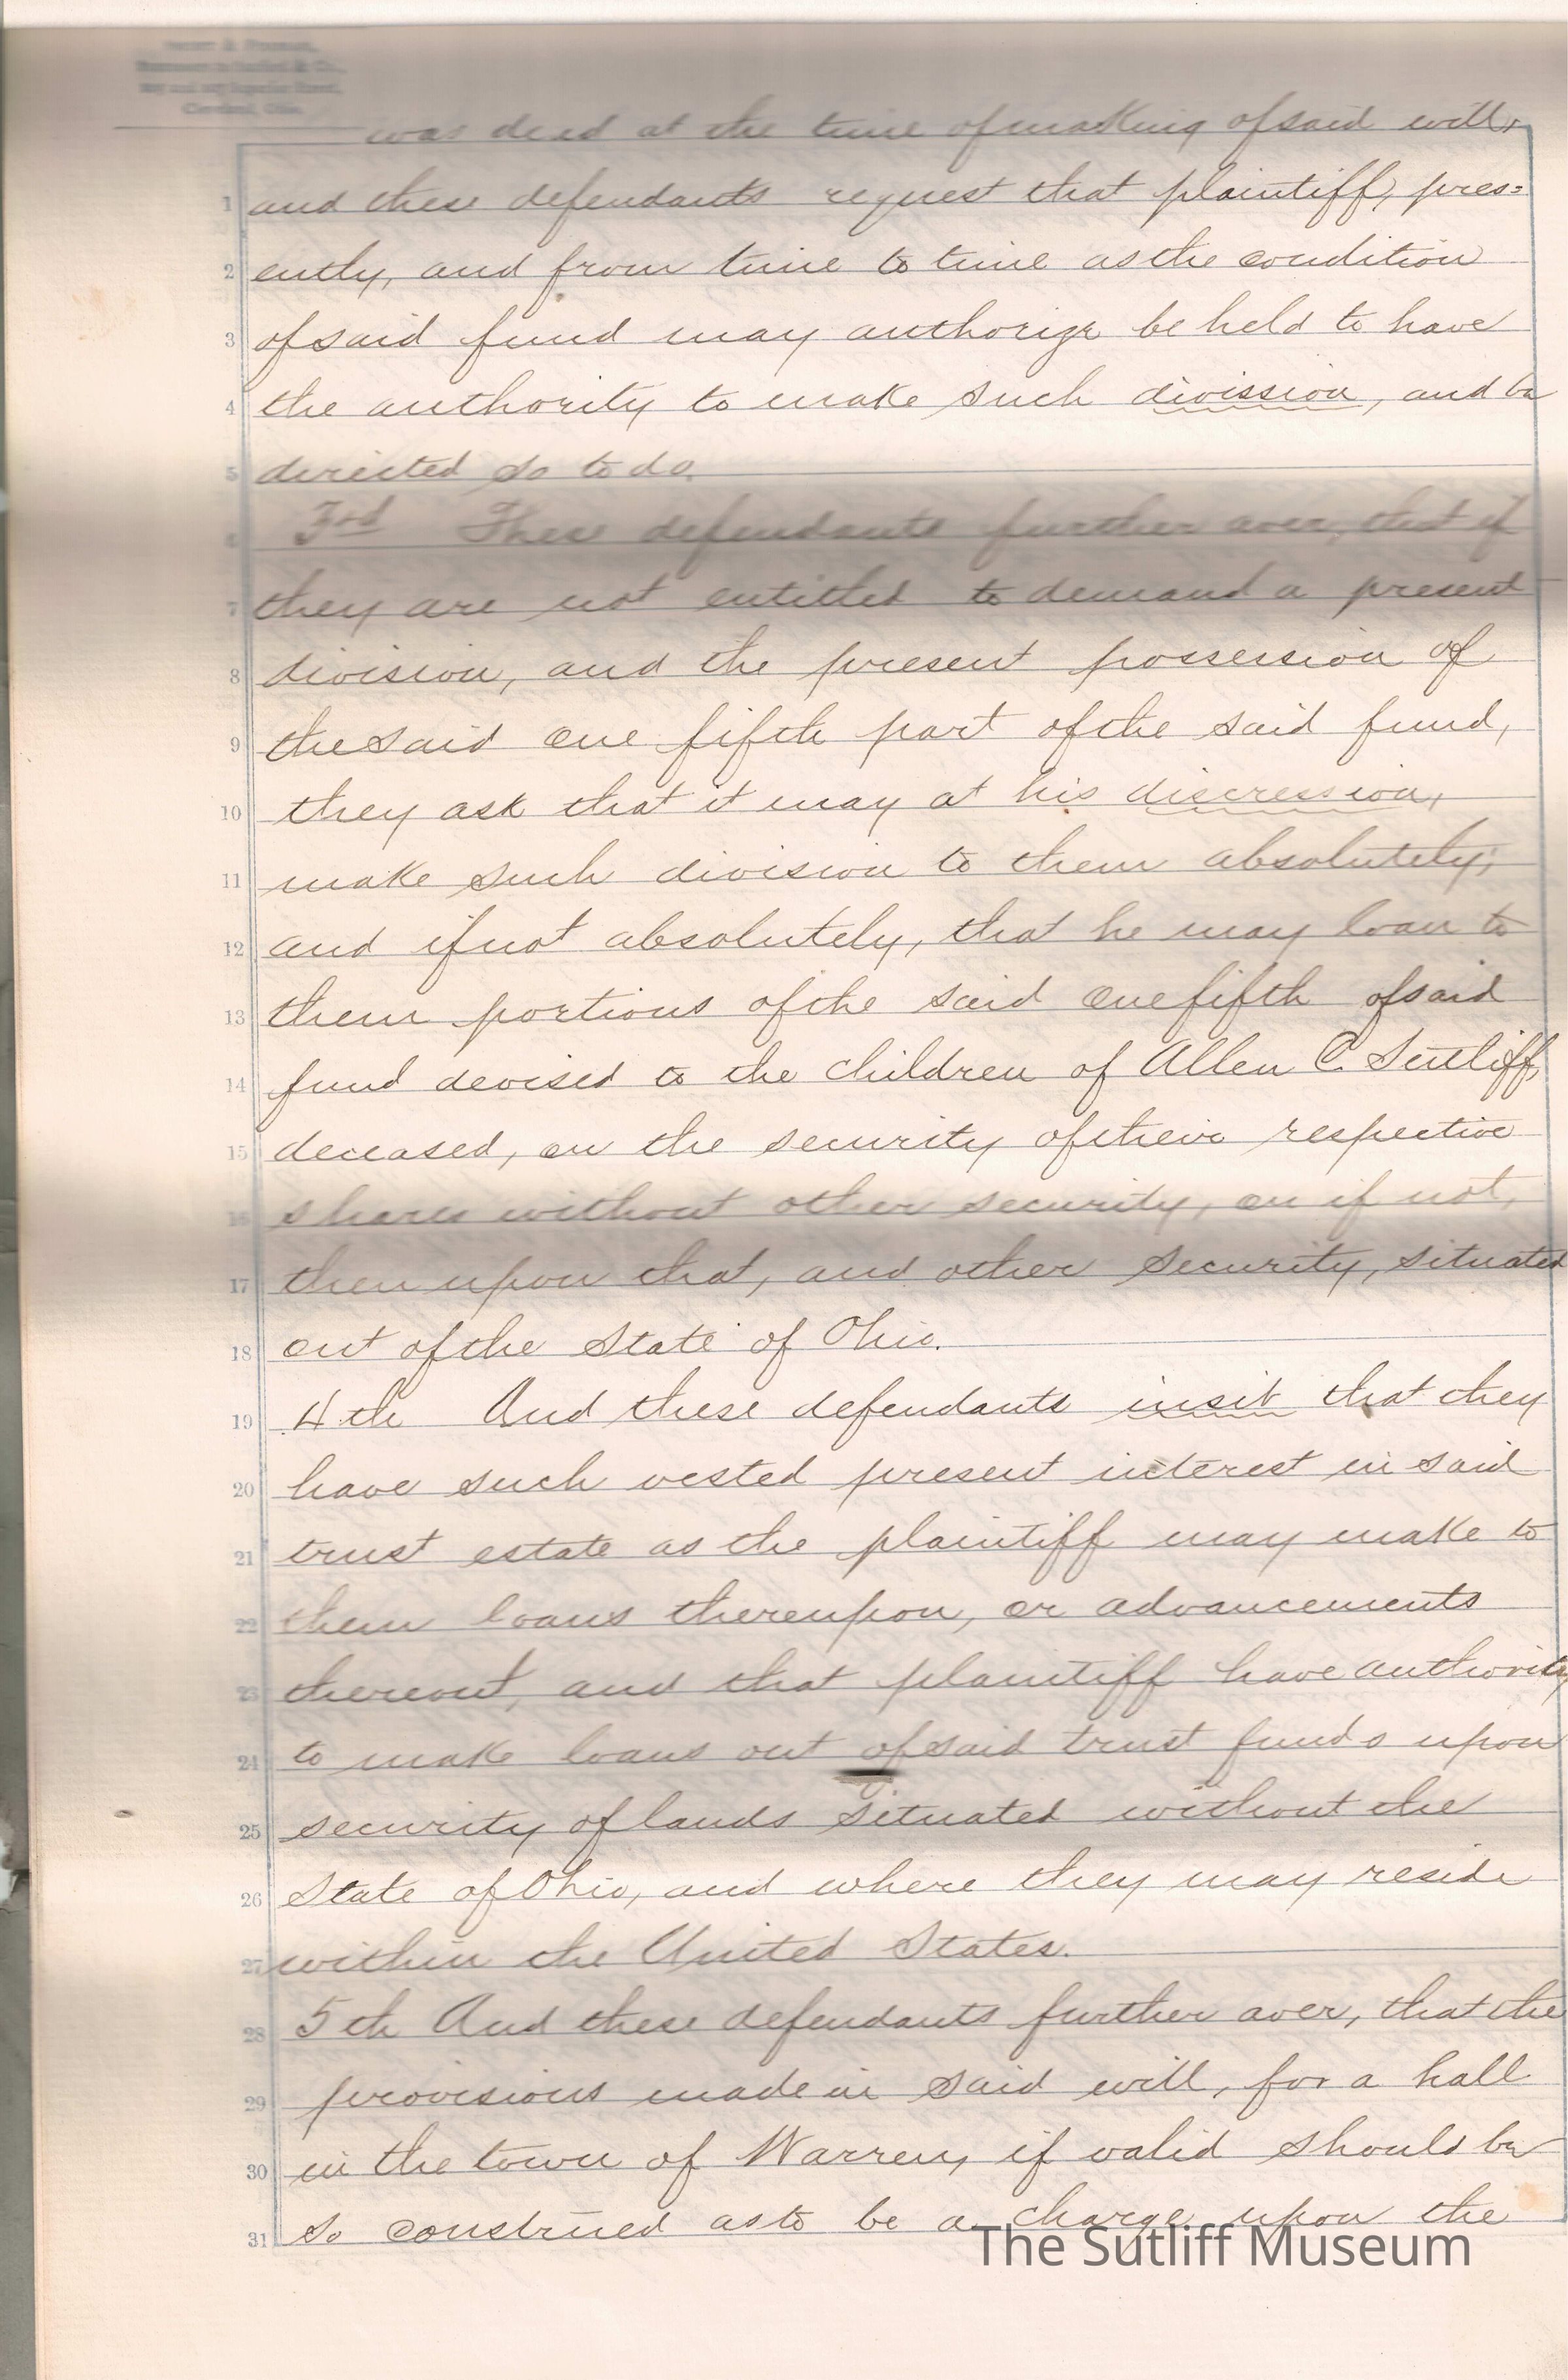 was dead at the time of making of said will,
1 and these defendants request that plaintiff, pres=
2 ently, and from time to time as the condition
3 of said fund may authorize be held to have
4 the authority to make such divission, and be
5 directed so to do.
6 3rd These defendants further aver, that if
7 they are not entitled to demand a present
8 division, and the present possession of
9 the said one fifth part of the said fund,
10 they ask that it may at his discression,
11 make such division to them absolutely;
12 and if not absolutely, that he may loan to
13 them portions of the said one fifth of said
14 fund devised to the children of Allen C. Sutliff,
15 deceased, on the security of their respective
16 shares without other security, or if not,
17 then upon that, and other security, situated
18 out of the State of Ohio.
19 4th And these defendants insit that they
20 have such vested present interest in said
21 trust estate as the plaintiff may make to
22 them loans thereupon, or advancements
23 thereout, and that plaintiff have authority
24 to make loans out of said trust funds upon
25 security of lands situated without the
26 State of Ohio, and where they may reside
27 within the United States.
28 5th And these defendants further aver, that the
29 provisions made in said will, for a hall
30 in the town of Warren, if valid should be
31 so construed as to be a charge upon the
The Sutliff Museum